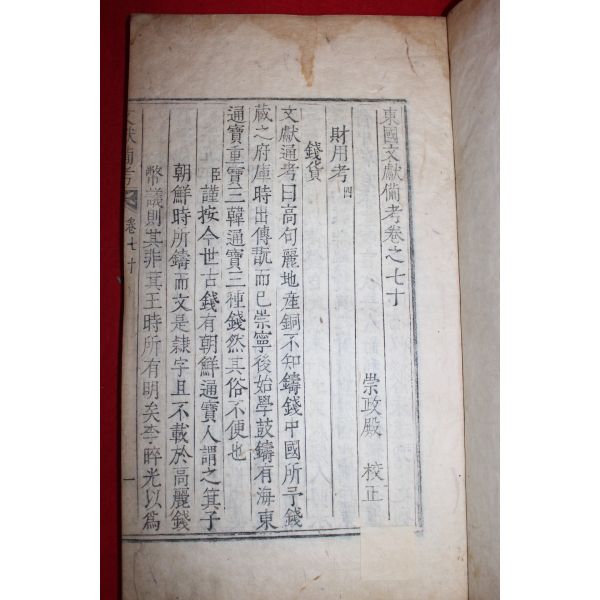 東國文獻備考卷之七十
崇政殿 校正
財用考 四
錢貨
文獻通考曰高句麗地産銅不知鑄錢中國所予錢
藏之府庫時出傳翫而已崇寧後始學鼓鑄有海東
通寶重寶三韓通寶三種錢然其俗不便也
臣謹按今世古錢有朝鮮通寶人謂之箕子
朝鮮時所鑄而文是隷字且不載於高麗錢
幣議則其非箕王時所有明矣李睟光以爲
文獻備考 卷七十 一